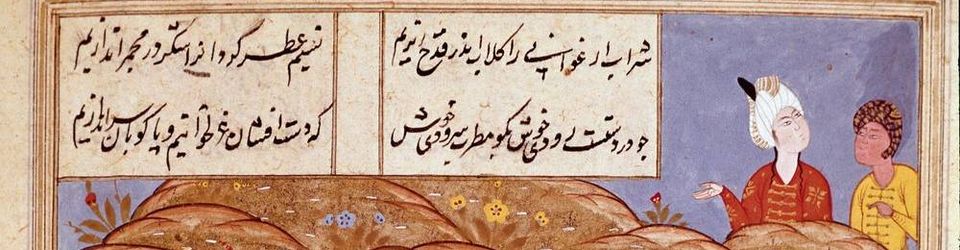 شراب ارغوانی را کلاب اندر قدح ریزیم نسیم عطر گردانرا شکر در مجمر اندازیم
جو در دستست رودی خوش بکو مطرب سرودی خوش که دست افشان غزل خوانیم و پا کوبان سر اندازیم